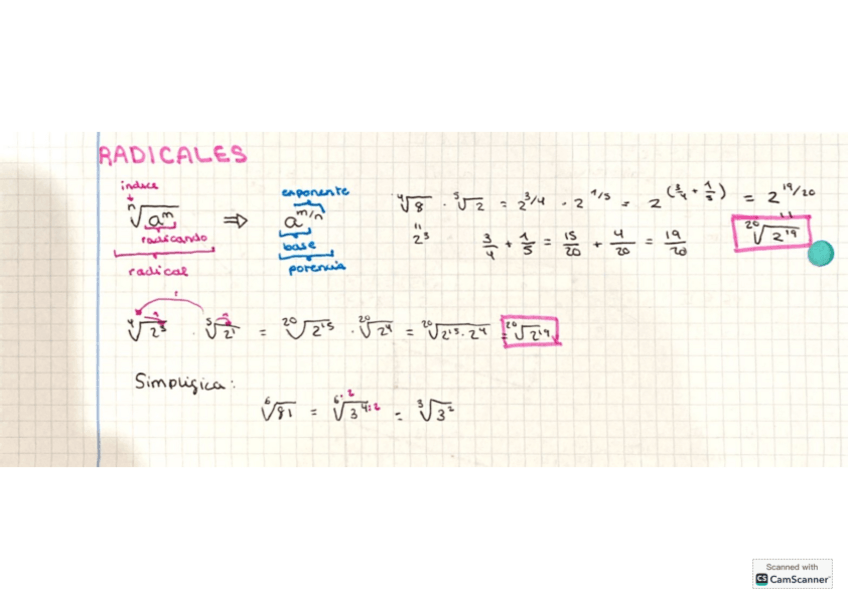 RADICALES
indice
ⁿ√aᵐ ⇒ a^(m/n)
radicando
radical
exponente
base
potencia
⁴√8 · ⁵√2 = 2^(3/4) · 2^(1/5) = 2^(3/4 + 1/5) = 2^(19/20)
" 2³
3/4 + 1/5 = 15/20 + 4/20 = 19/20
" ²⁰√2¹⁹
⁴√2³ · ⁵√2¹ = ²⁰√2¹⁵ · ²⁰√2⁴ = ²⁰√2¹⁵·2⁴ = ²⁰√2¹⁹
Simplifica:
⁶√81 = ⁶:²√3⁴:² = ³√3²
Scanned with
CS CamScanner